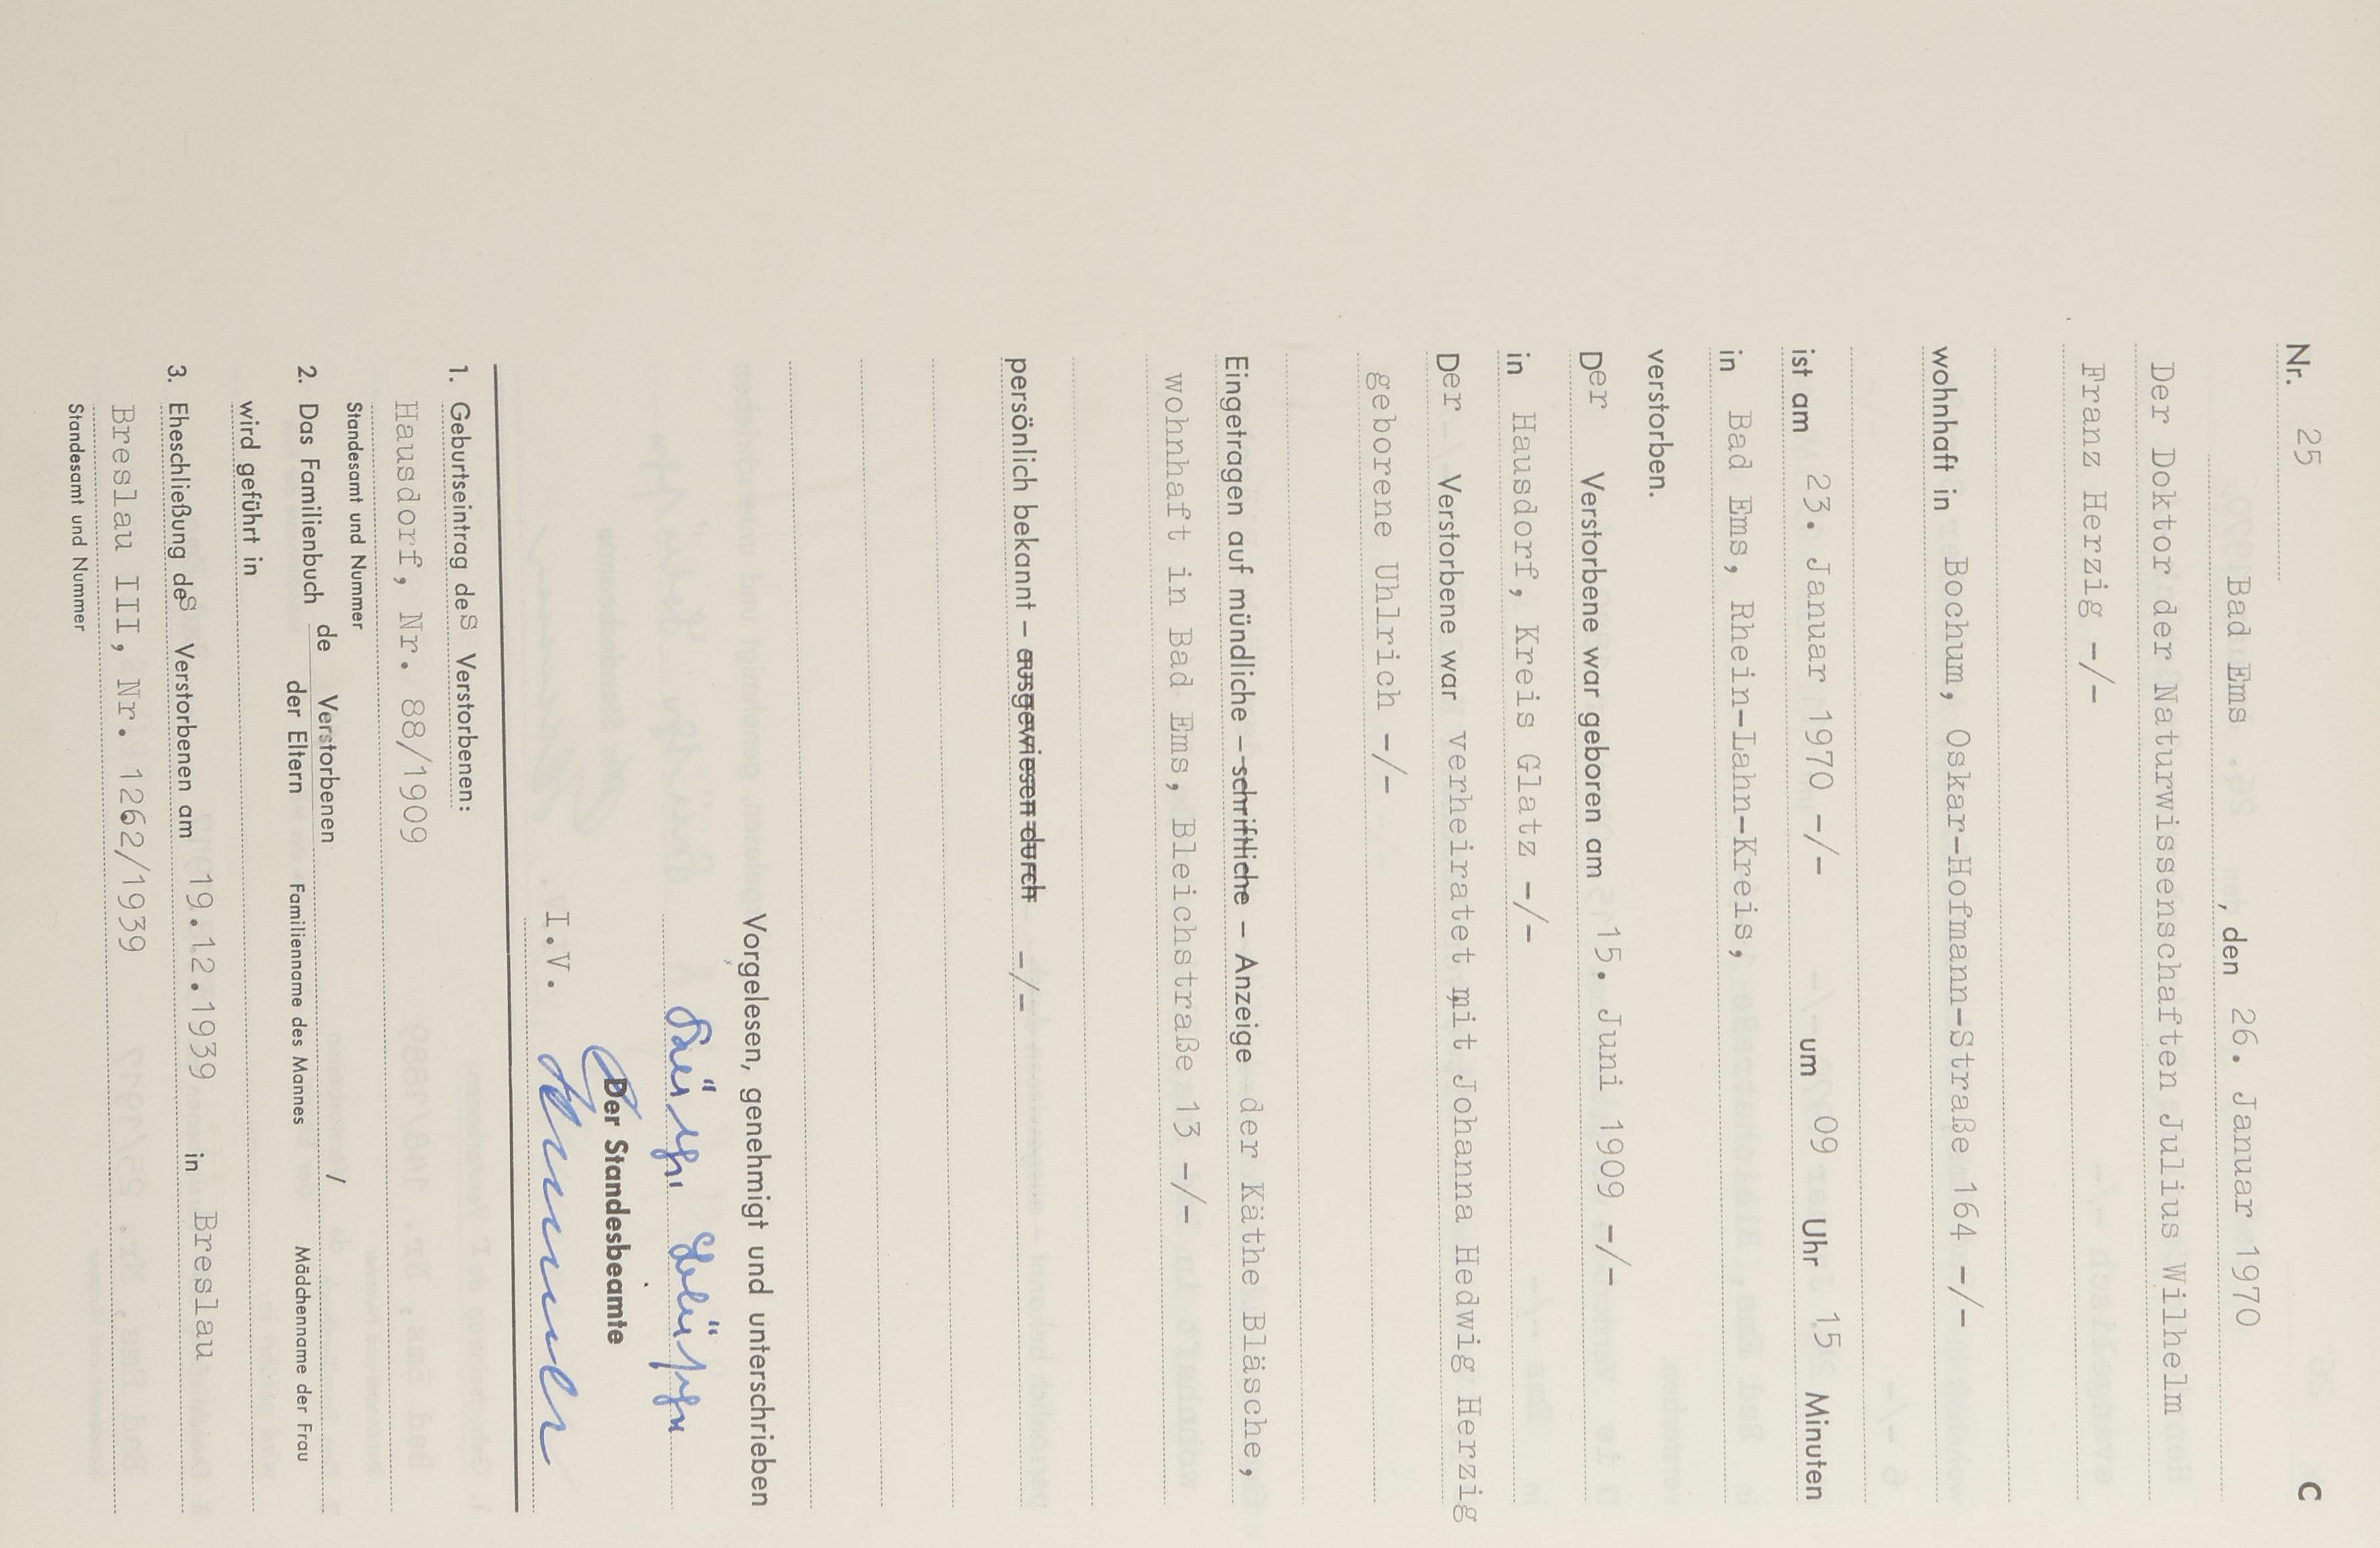 Nr. 25 C
Bad Ems, den 26. Januar 1970
Der Doktor der Naturwissenschaften Julius Wilhelm
Franz Herzig -/-
wohnhaft in Bochum, Oskar-Hofmann-Straße 164 -/-
ist am 23. Januar 1970 -/- um 09 Uhr 15 Minuten
in Bad Ems, Rhein-Lahn-Kreis,
verstorben.
Der Verstorbene war geboren am 15. Juni 1909 -/-
in Hausdorf, Kreis Glatz -/-
Der Verstorbene war verheiratet mit Johanna Hedwig Herzig
geborene Uhlrich -/-
Eingetragen auf mündliche - schriftliche - Anzeige der Käthe Bläsche,
wohnhaft in Bad Ems, Bleichstraße 13 -/-
persönlich bekannt - ausgewiesen durch -/-
Vorgelesen, genehmigt und unterschrieben
Käthe Bläsche
Der Standesbeamte
I.V.
1. Geburtseintrag des Verstorbenen:
Hausdorf, Nr. 88/1909
Standesamt und Nummer
2. Das Familienbuch de Verstorbenen /
der Eltern Familienname des Mannes Mädchenname der Frau
wird geführt in
3. Eheschließung des Verstorbenen am 19.12.1939 in Breslau
Breslau III, Nr. 1262/1939
Standesamt und Nummer